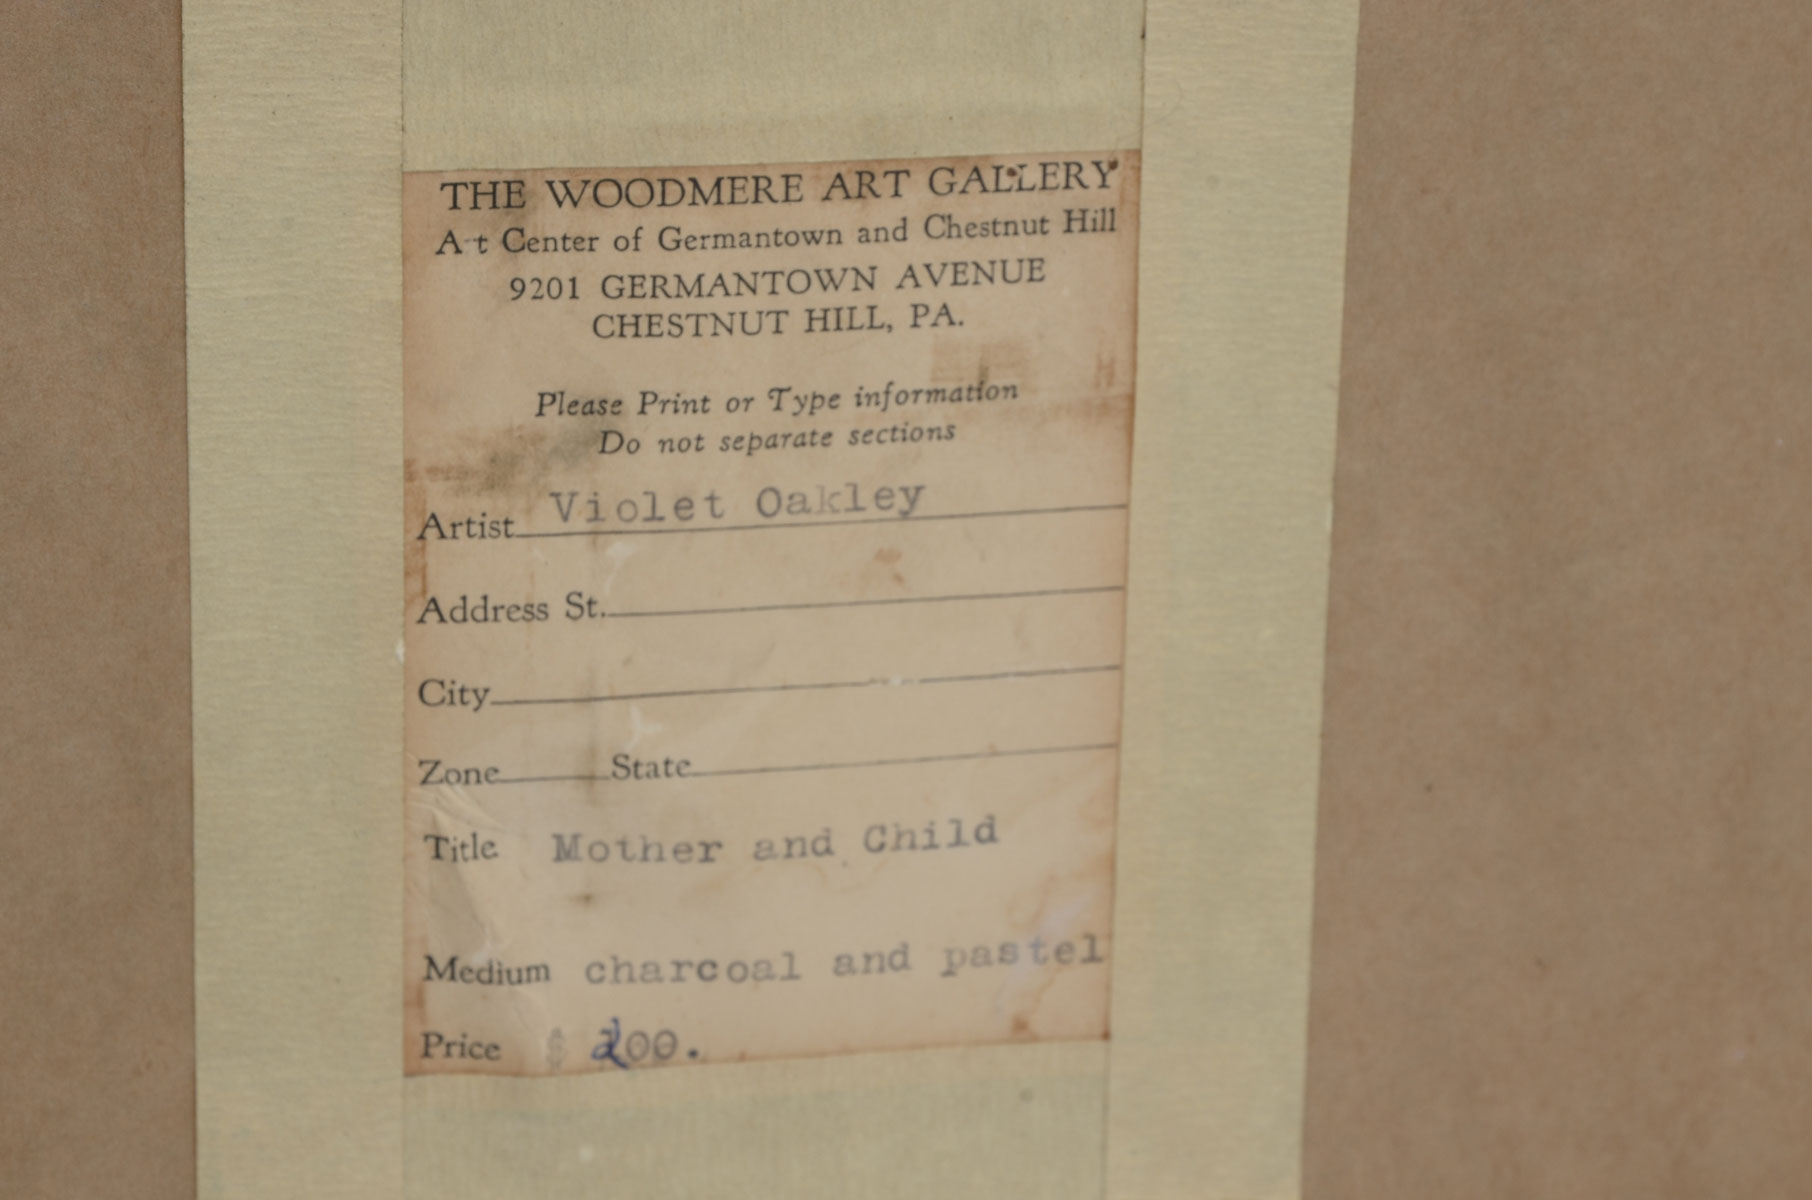 THE WOODMERE ART GALLERY
Art Center of Germantown and Chestnut Hill
9201 GERMANTOWN AVENUE
CHESTNUT HILL, PA.
Please Print or Type information
Do not separate sections
Artist Violet Oakley
Address St.
City
Zone State
Title Mother and Child
Medium charcoal and pastel
Price $ 200.